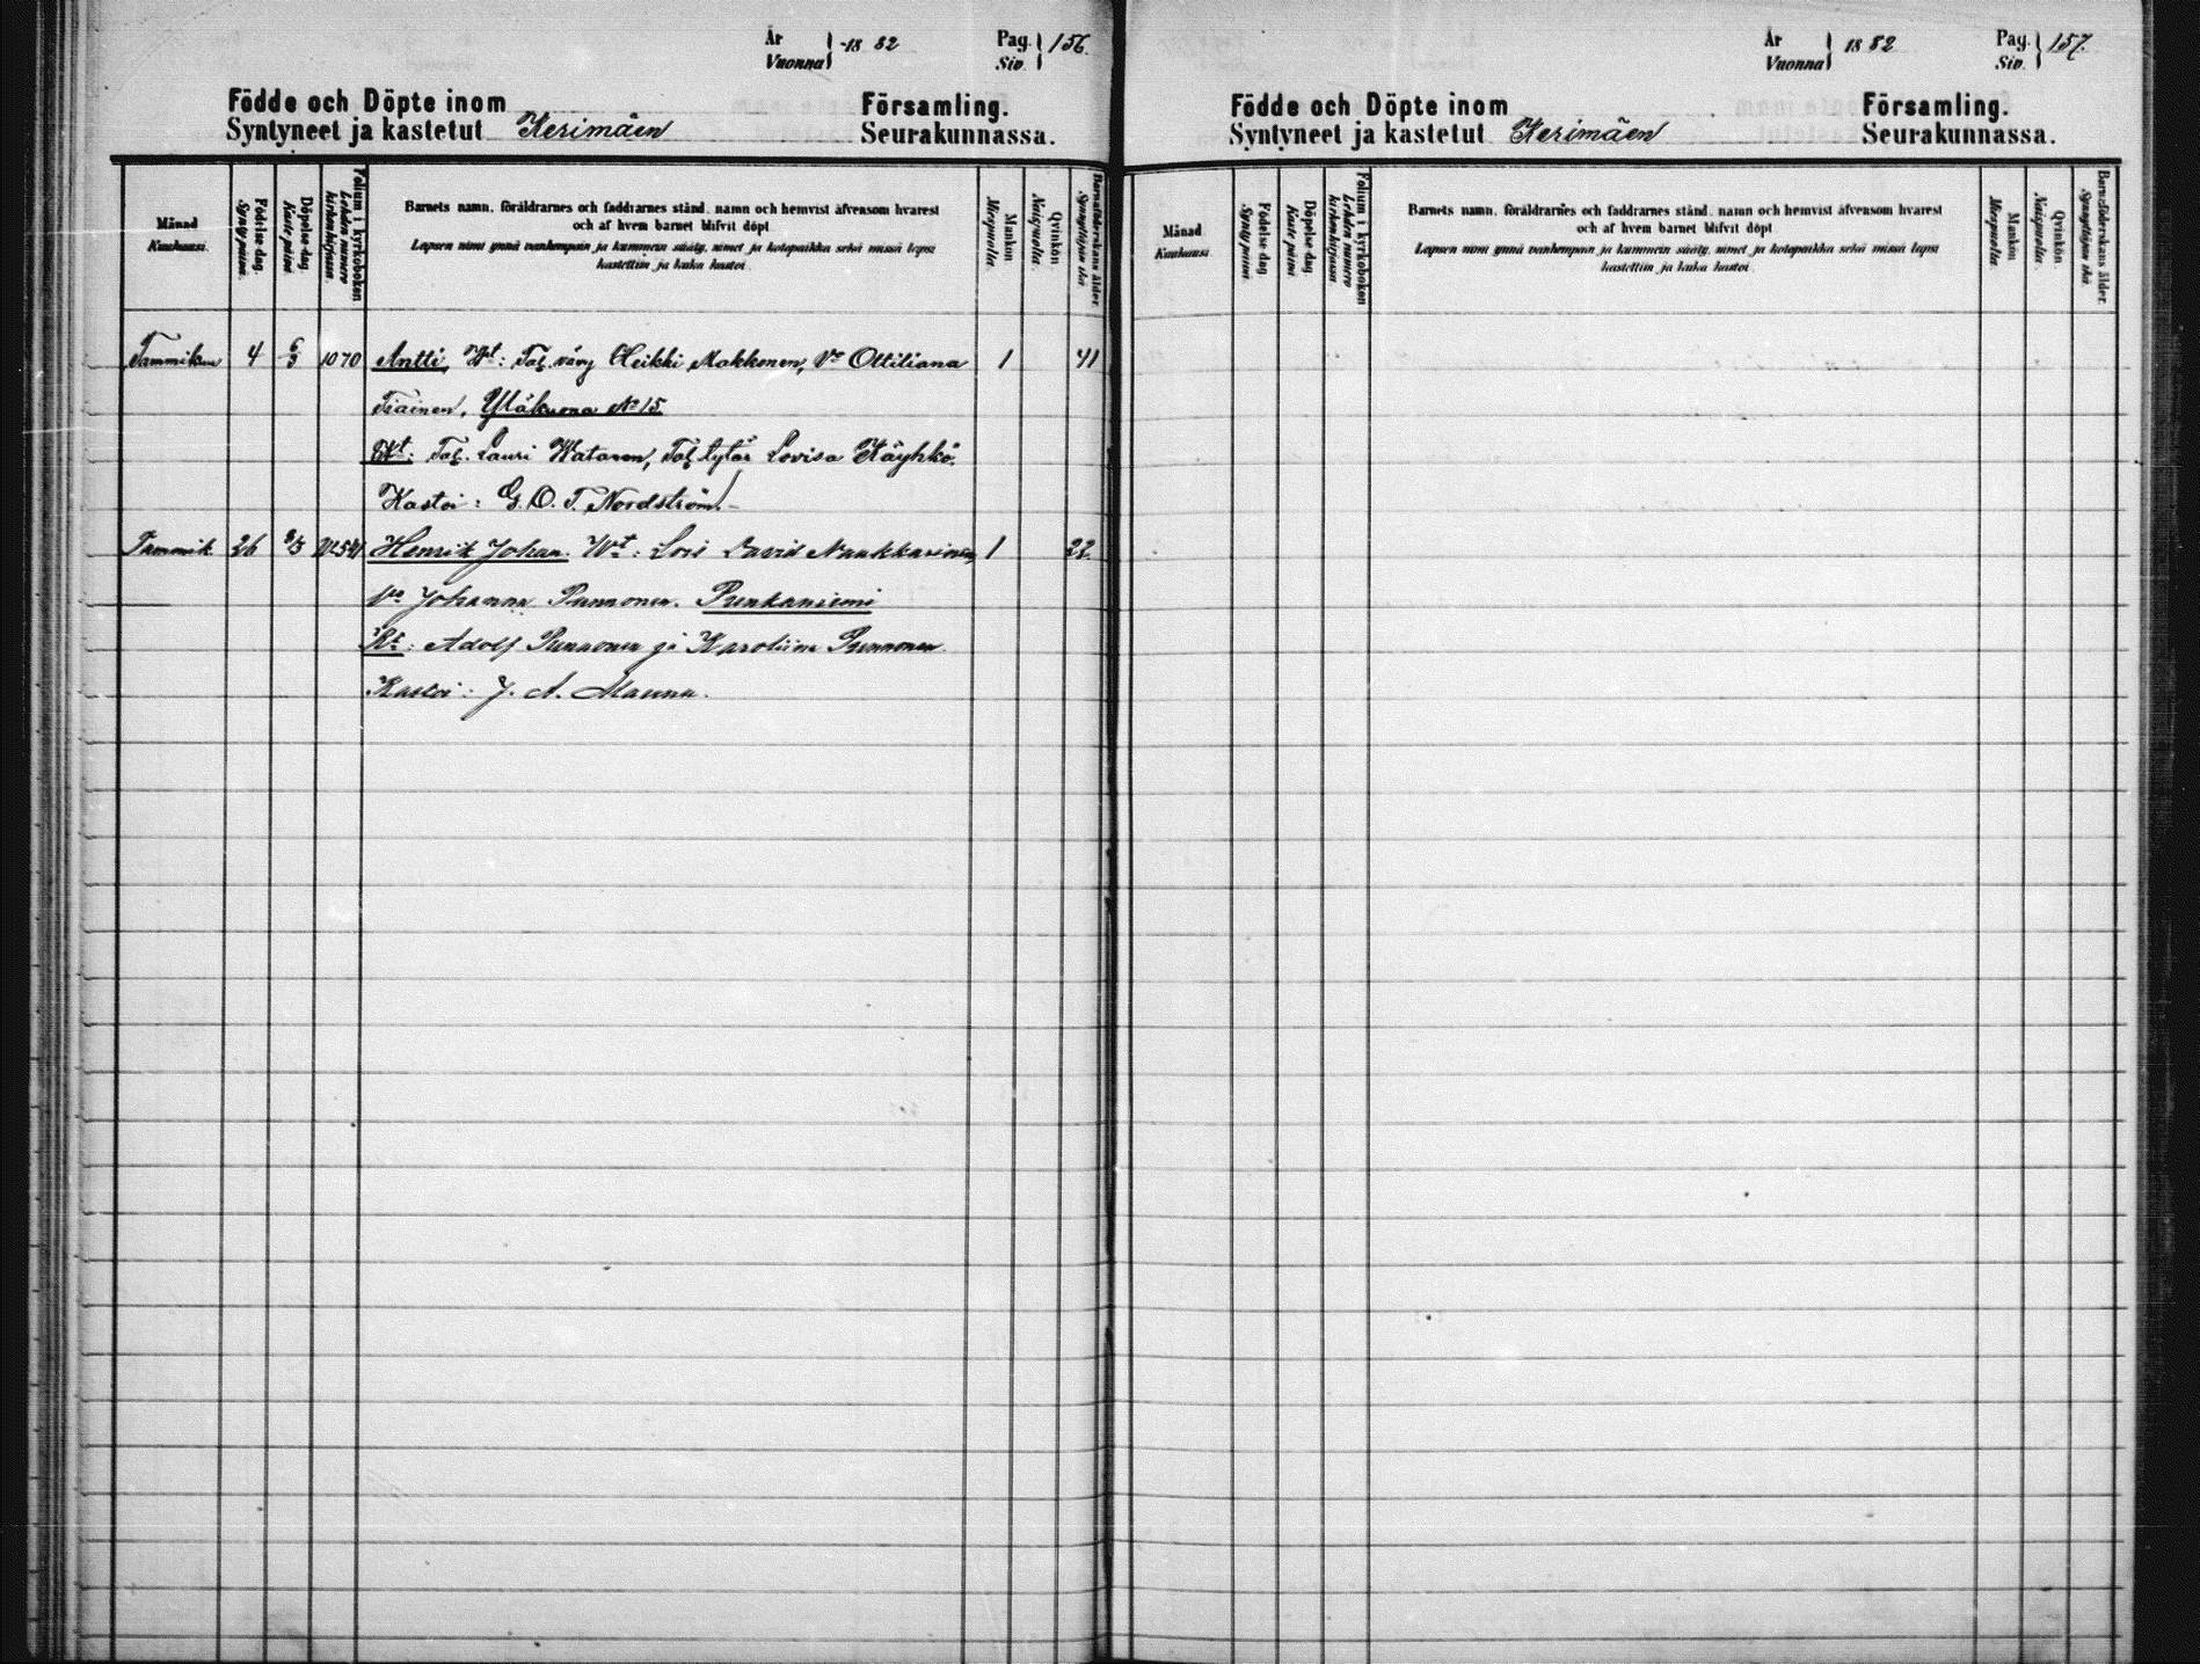 År
Vuonna 1882
Pag.
Siv. 156.
Födde och Döpte inom Församling.
Syntyneet ja kastetut Kerimäen Seurakunnassa.
Månad
Kuukausi.
Födelse dag.
Synty päivä.
Döpelse dag
Kaste päivä
Folium i kyrkoboken
Lehden numero
kirkonkirjassa.
Barnets namn, föräldrarnes och faddrarnes stånd, namn och hemvist äfvensom hvarest
och af hvem barnet blifvit döpt.
Lapsen nimi ynnä vanhempain ja kummein sääty, nimet ja kotopaikka sekä missä lapsi
kastettiin ja kuka kastoi.
Mankön
Miespuolia.
Qvinkön
Naispuolia.
Barnaföderskans ålder.
Synnyttäjän ikä
Tammikuu 4 6/3 1070 Antti, Wt: Tal. vävy Heikki Makkonen, Vo Ottiliana 1 41
Tiainen, Yläkuona No 15
Kt: Tal. Lauri Watanen, Tal. tytär Lovisa Käyhkö.
Kastoi: G. O. T. Nordström.
Tammik 26 Henrik Johan. Wt: Lois David Naukkarinen, 1 22.
Vo Johanna Punnonen. Punkaniemi
Kt: Adolf Punnonen ja Karoliina Punnonen.
Kastoi: J. A. Mauna.
År
Vuonna 1882
Pag.
Siv. 157.
Födde och Döpte inom Församling.
Syntyneet ja kastetut Kerimäen Seurakunnassa.
Månad
Kuukausi
Födelse dag
Synty päivä
Döpelse dag
Kaste päivä.
Folium i kyrkoboken
Lehden numero
kirkonkirjassa
Barnets namn, föräldrarnes och faddrarnes stånd, namn och hemvist äfvensom hvarest
och af hvem barnet blifvit döpt
Lapsen nimi ynnä vanhempain ja kummein sääty, nimet ja kotopaikka sekä missä lapsi
kastettiin ja kuka kastoi.
Mankön
Miespuolia.
Qvinkön.
Naispuolia.
Barnaföderskans ålder.
Synnyttäjän ikä.